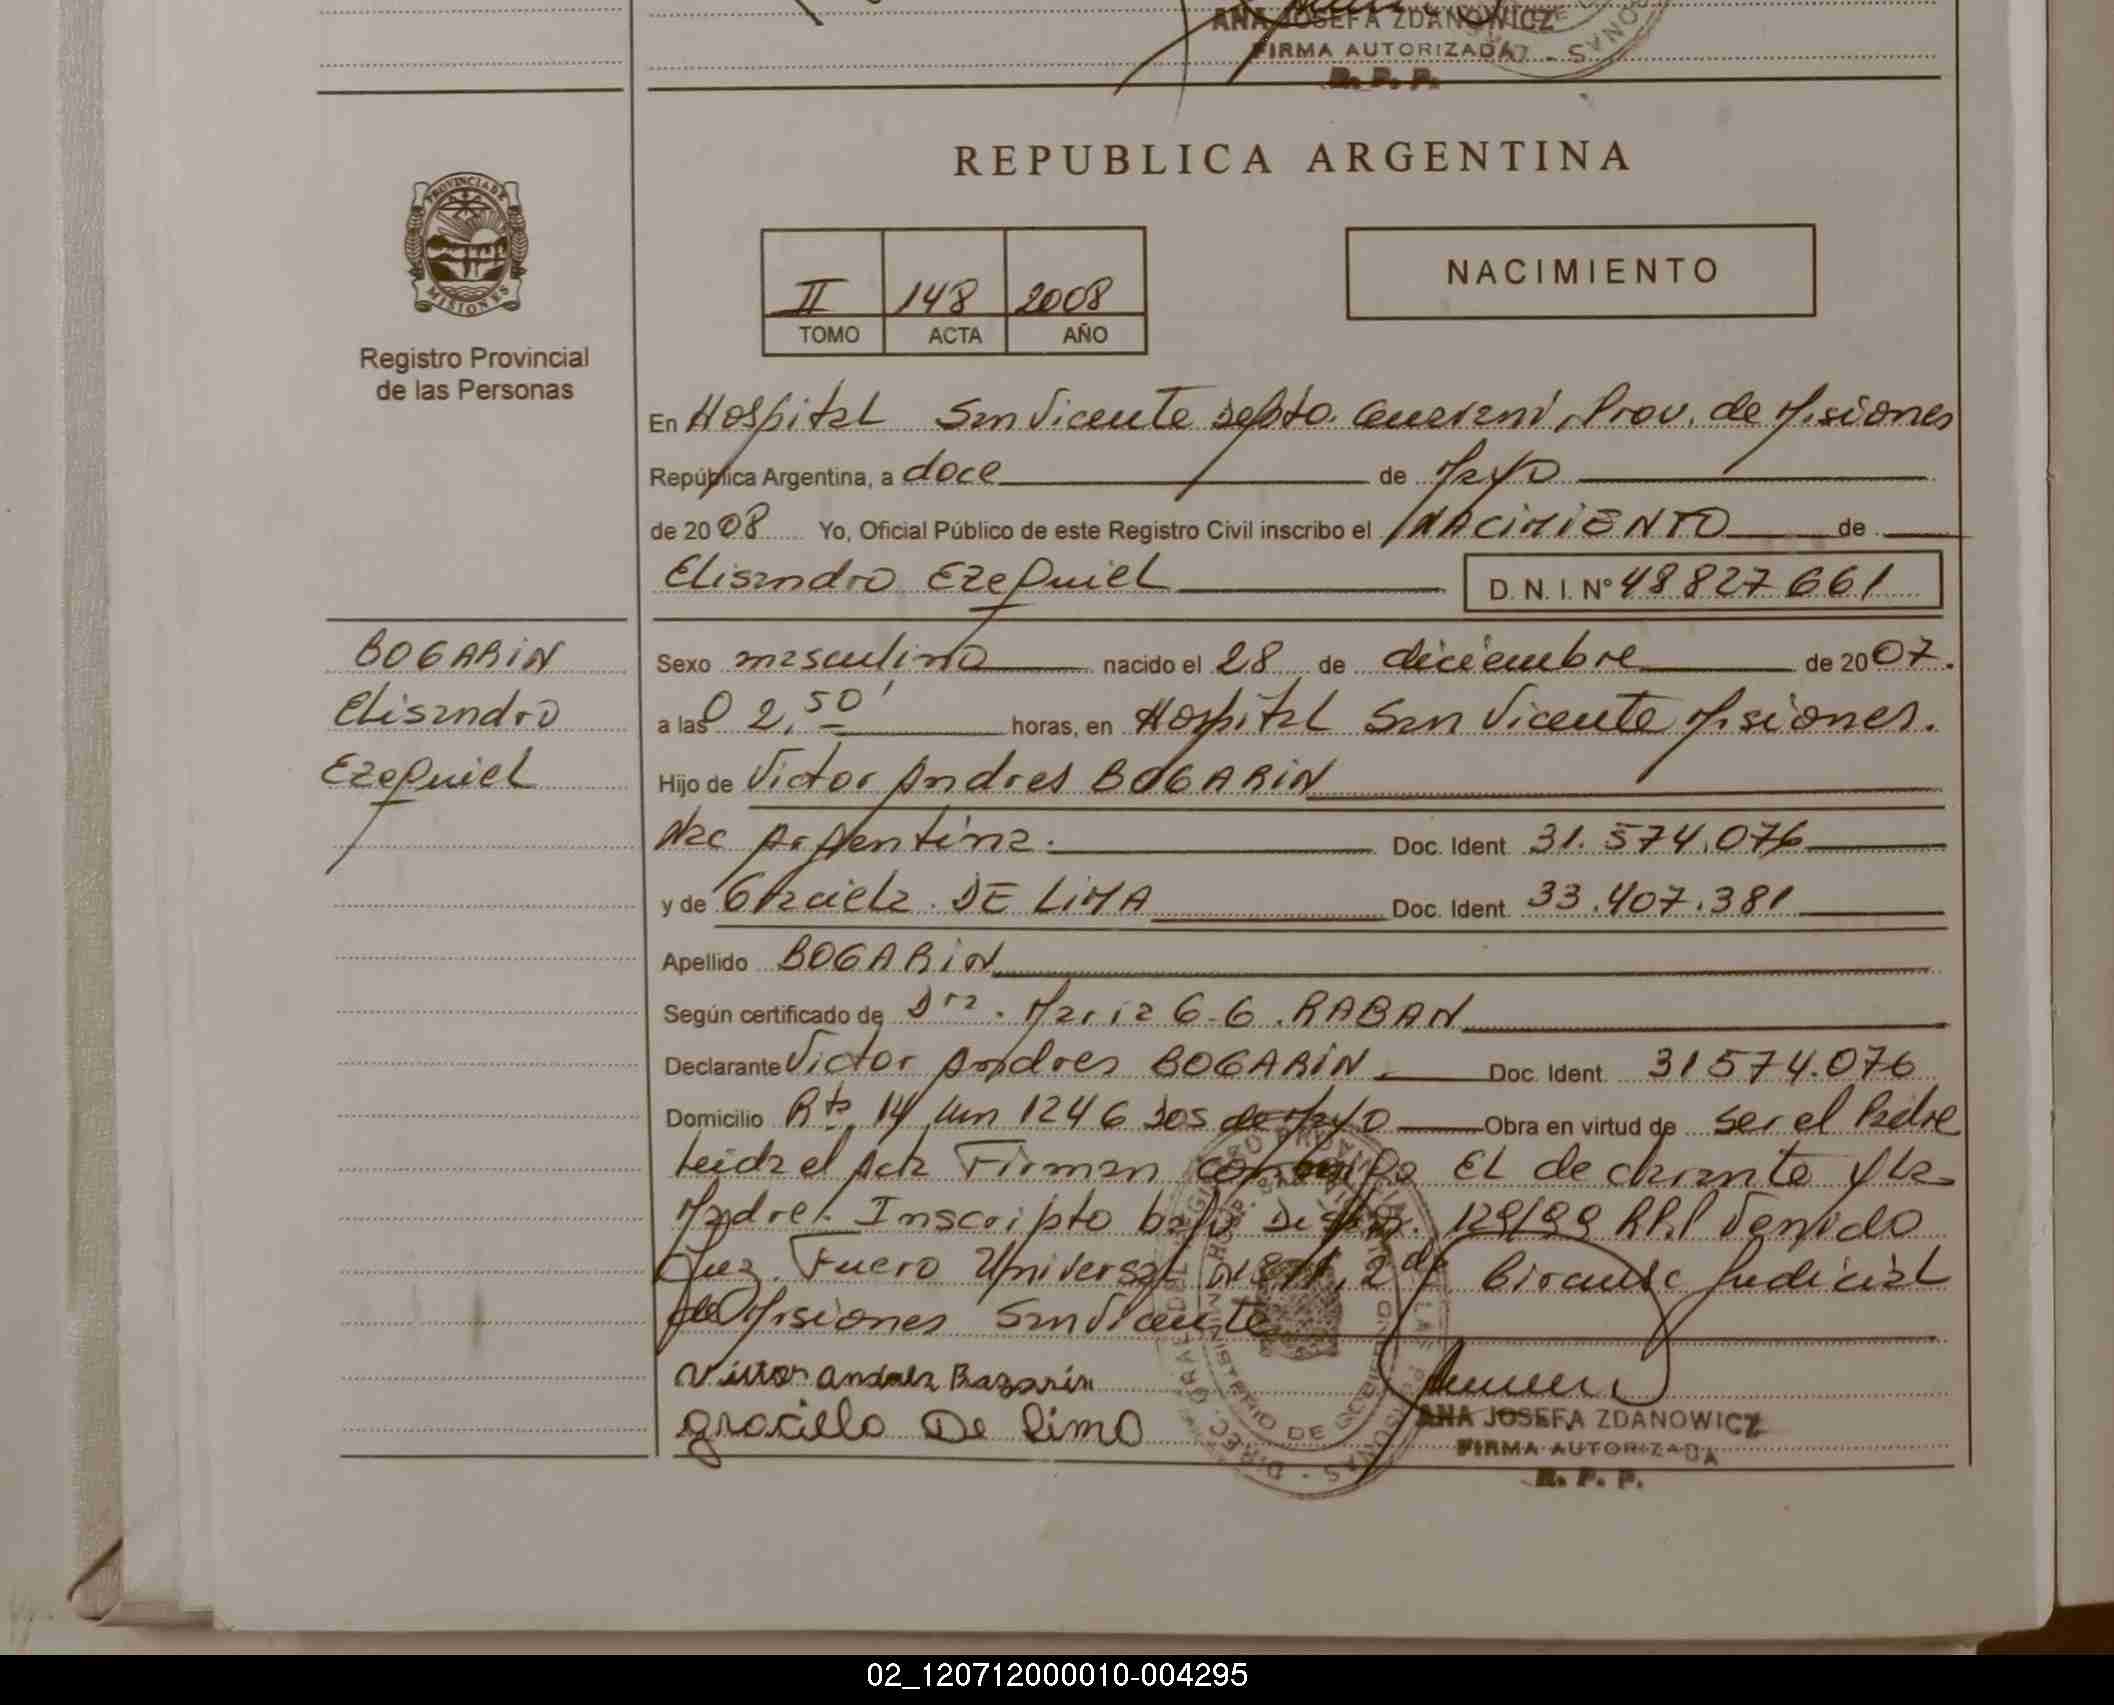 ANA JOSEFA ZDANOWICZ
FIRMA AUTORIZADA
R. P. P.
REPUBLICA ARGENTINA
PROVINCIA DE MISIONES
II 148 2008
TOMO ACTA AÑO
NACIMIENTO
Registro Provincial
de las Personas
En Hospital San Vicente Depto. Guarani, Prov. de Misiones
República Argentina, a doce de Mayo
de 2008 Yo, Oficial Público de este Registro Civil inscribo el NACIMIENTO de
Elisandro Ezequiel D. N. I. Nº 48827661
BOGARIN
Elisandro
Ezequiel
Sexo masculino nacido el 28 de diciembre de 2007.
a las 02,50' horas, en Hospital San Vicente Misiones.
Hijo de Victor Andres BOGARIN
Nac Argentina. Doc. Ident. 31.574.076
y de Graciela DE LIMA Doc. Ident. 33.407.381
Apellido BOGARIN
Según certificado de Dra. Maria G. G. RABAN
Declarante Victor Andres BOGARIN. Doc. Ident. 31574.076
Domicilio Rta 14 km 1246 Dos de Mayo Obra en virtud de ser el Padre
Leida el Acta Firman conmigo El declarante y la
Madre. Inscripto bajo Dispos. 129/99 RPP Venido
Juz. Fuero Universal 2da Circunsc Judicial
de Misiones San Vicente
graciela De lima
ANA JOSEFA ZDANOWICZ
FIRMA AUTORIZADA
R. P. P.
02_120712000010-004295